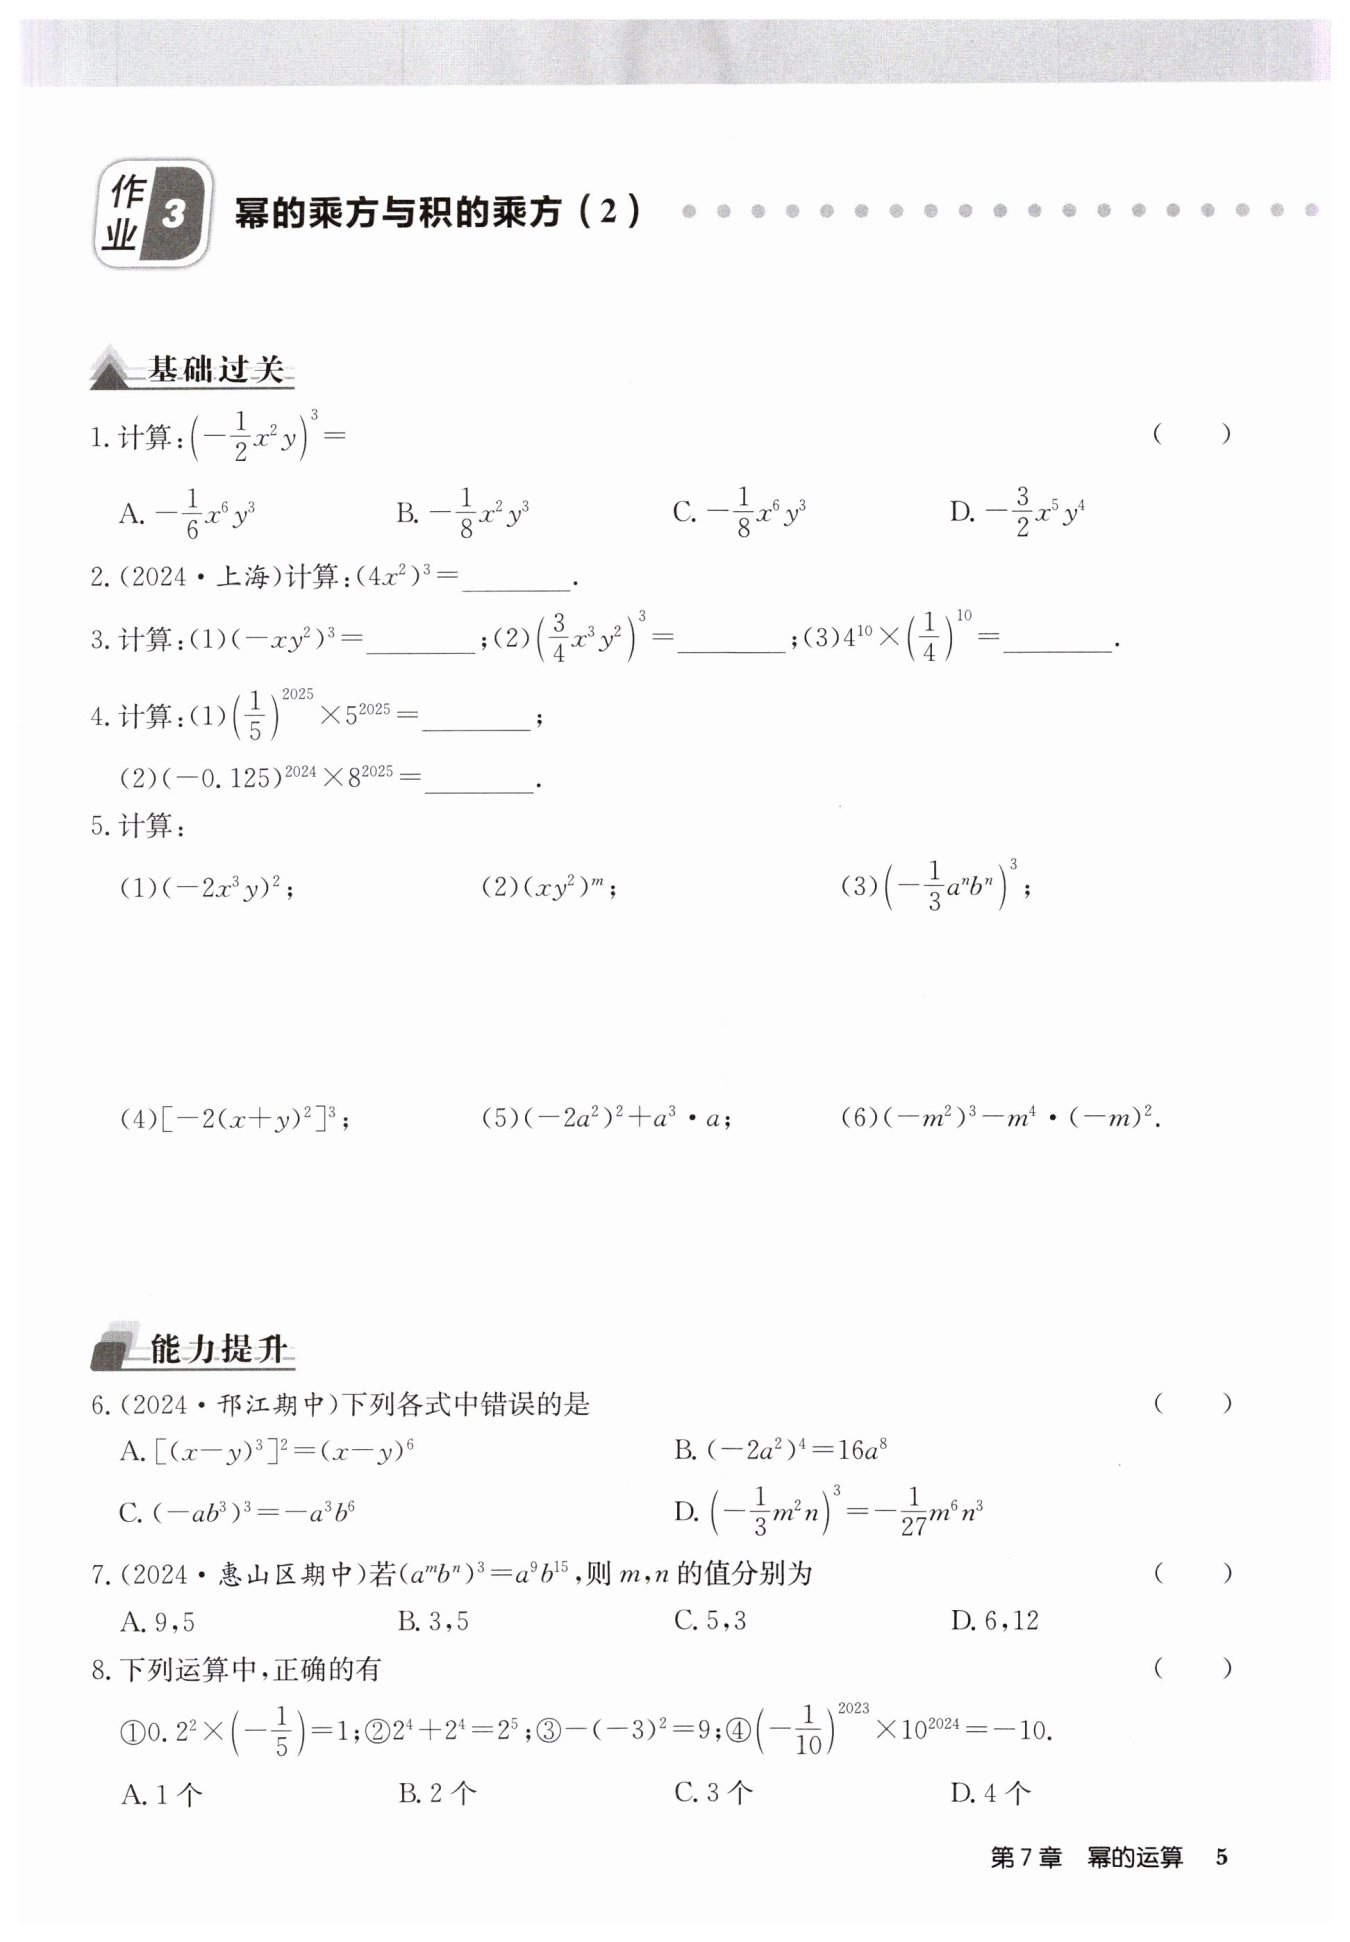 作业 3 幂的乘方与积的乘方(2)
基础过关
1.计算:$\left(-\frac{1}{2}x^2y\right)^3=$ ( )
A. $-\frac{1}{6}x^6y^3$ B. $-\frac{1}{8}x^2y^3$ C. $-\frac{1}{8}x^6y^3$ D. $-\frac{3}{2}x^5y^4$
2.(2024·上海)计算:$(4x^2)^3=$________.
3.计算:(1)$(-xy^2)^3=$________;(2)$\left(\frac{3}{4}x^3y^2\right)^3=$________;(3)$4^{10}\times\left(\frac{1}{4}\right)^{10}=$________.
4.计算:(1)$\left(\frac{1}{5}\right)^{2025}\times5^{2025}=$________;
(2)$(-0.125)^{2024}\times8^{2025}=$________.
5.计算:
(1)$(-2x^3y)^2$; (2)$(xy^2)^m$; (3)$\left(-\frac{1}{3}a^nb^n\right)^3$;
(4)$[-2(x+y)^2]^3$; (5)$(-2a^2)^2+a^3·a$; (6)$(-m^2)^3-m^4·(-m)^2$.
能力提升
6.(2024·邗江期中)下列各式中错误的是 ( )
A. $[(x-y)^3]^2=(x-y)^6$ B. $(-2a^2)^4=16a^8$
C. $(-ab^3)^3=-a^3b^6$ D. $\left(-\frac{1}{3}m^2n\right)^3=-\frac{1}{27}m^6n^3$
7.(2024·惠山区期中)若$(a^mb^n)^3=a^9b^{15}$,则 m,n 的值分别为 ( )
A. 9,5 B. 3,5 C. 5,3 D. 6,12
8.下列运算中,正确的有 ( )
①$0.2^2\times\left(-\frac{1}{5}\right)=1$;②$2^4+2^4=2^5$;③$-(-3)^2=9$;④$\left(-\frac{1}{10}\right)^{2023}\times10^{2024}=-10$.
A. 1 个 B. 2 个 C. 3 个 D. 4 个
第 7 章 幂的运算 5